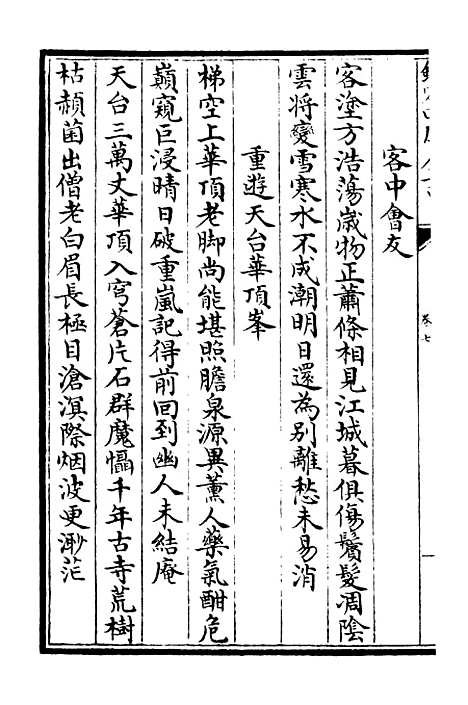 卷七
客中會友
客塗方浩蕩歲物正蕭條相見江城暮俱傷鬢髮凋陰
雲將變雪寒水不成潮明日還為別離愁未易消
重遊天台華頂峯
梯空上華頂老脚尚能堪照膽泉源異薰人藥氣酣危
巔窺巨浸晴日破重嵐記得前回到幽人未結庵
天台三萬丈華頂入穹蒼片石群魔懾千年古寺荒樹
枯赬菌出僧老白眉長極目滄溟際烟波更渺茫